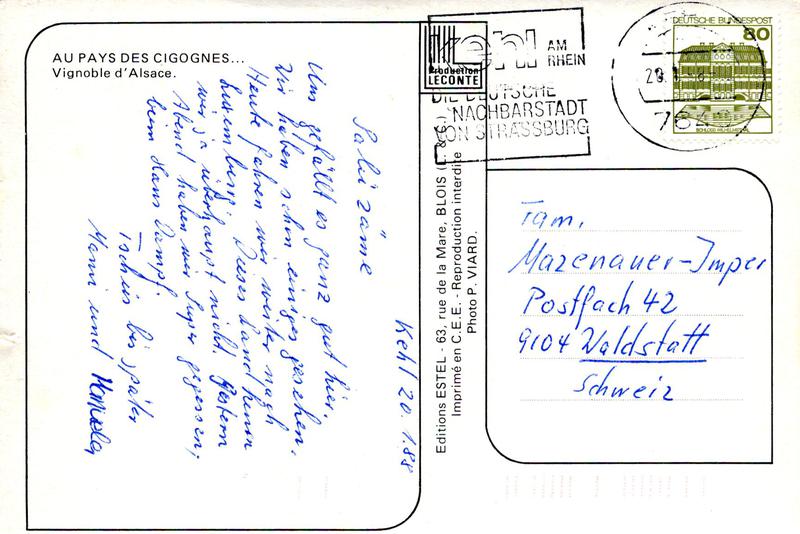 AU PAYS DES CIGOGNES...
Vignoble d'Alsace.
Production
LECONTE
kehl AM
RHEIN
DIE DEUTSCHE
NACHBARSTADT
VON STRASSBURG
DEUTSCHE BUNDESPOST
80
SCHLOSS WILHELMSTHAL
20.1.88
7640
Kehl 20.1.88
Sali zäme
Uns gefällt es ganz gut hier.
Wir haben schon einiges gesehen.
Heute fahren wir weiter nach
Luxemburg. Dieses Land kennen
wir ja überhaupt nicht. Gestern
Abend haben wir Super gegessen,
beim Hans Dampf.
Tschüs bis später
und
Editions ESTEL - 63, rue de la Mare, BLOIS (L. & C.)
Imprimé en C.E.E. - Reproduction interdite
Photo P. VIARD.
Fam.
Mazenauer-Imper
Postfach 42
9104 Waldstatt
Schweiz